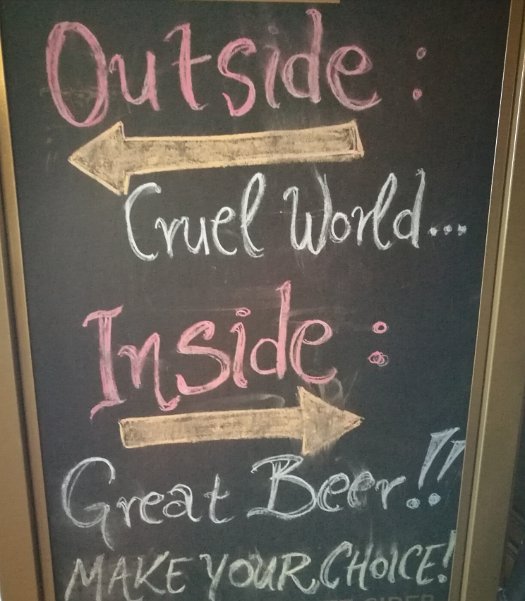 Outside :
Cruel World...
Inside :
Great Beer!!
MAKE YOUR CHOICE!
CIDER